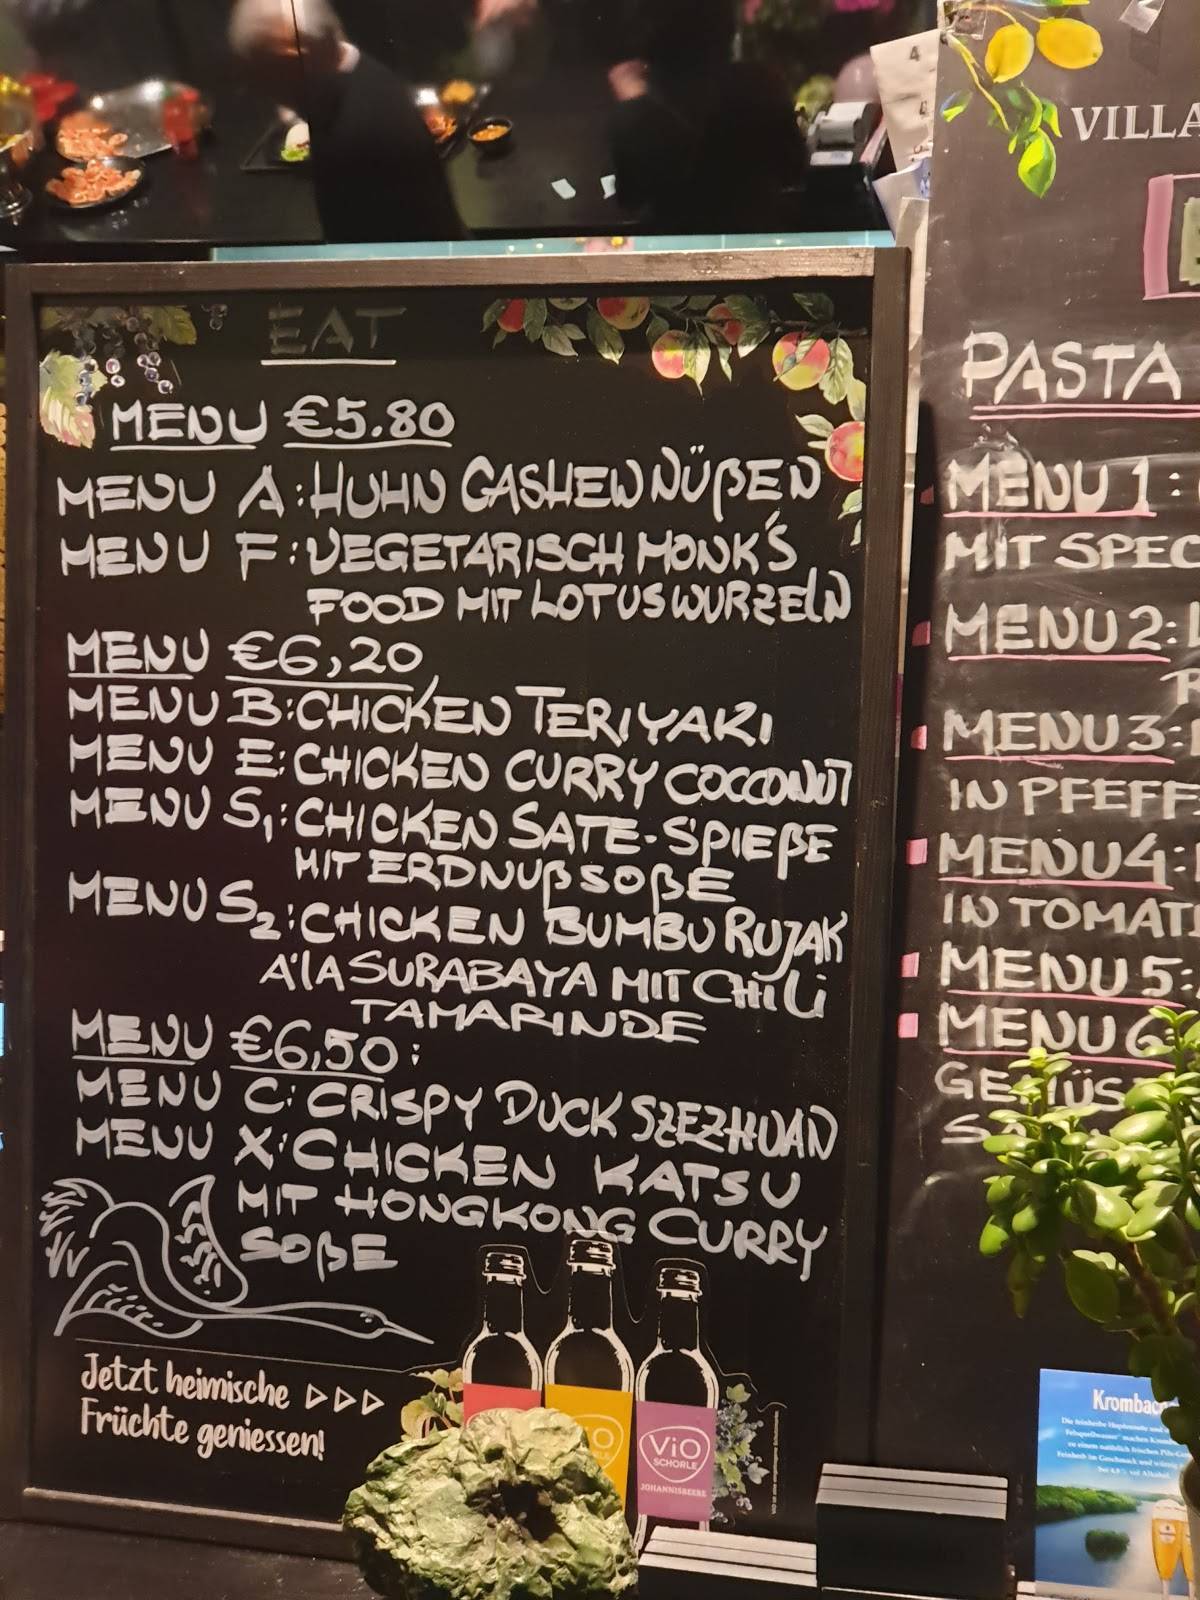 EAT
MENU €5.80
MENU A: HUHN CASHEWNÜßEN
MENU F: VEGETARISCH MONK'S
FOOD MIT LOTUSWURZELN
MENU €6,20
MENU B: CHICKEN TERIYAKI
MENU E: CHICKEN CURRY COCCONUT
MENU S1: CHICKEN SATE-SPIEßE
MIT ERDNUßSOßE
MENU S2: CHICKEN BUMBU RUJAK
A'lA SURABAYA MIT CHILI
TAMARINDE
MENU €6,50:
MENU C: CRISPY DUCK SZEZHUAN
MENU X: CHICKEN KATSU
MIT HONGKONG CURRY
SOßE
Jetzt heimische
Früchte geniessen!
ViO
SCHORLE
JOHANNISBEERE
VILLA
PASTA
MENU 1:
MIT SPEC
MENU 2:
MENU 3:
IN PFEFF
MENU 4:
IN TOMATI
MENU 5:
MENU 6
GEMÜSE
Krombac